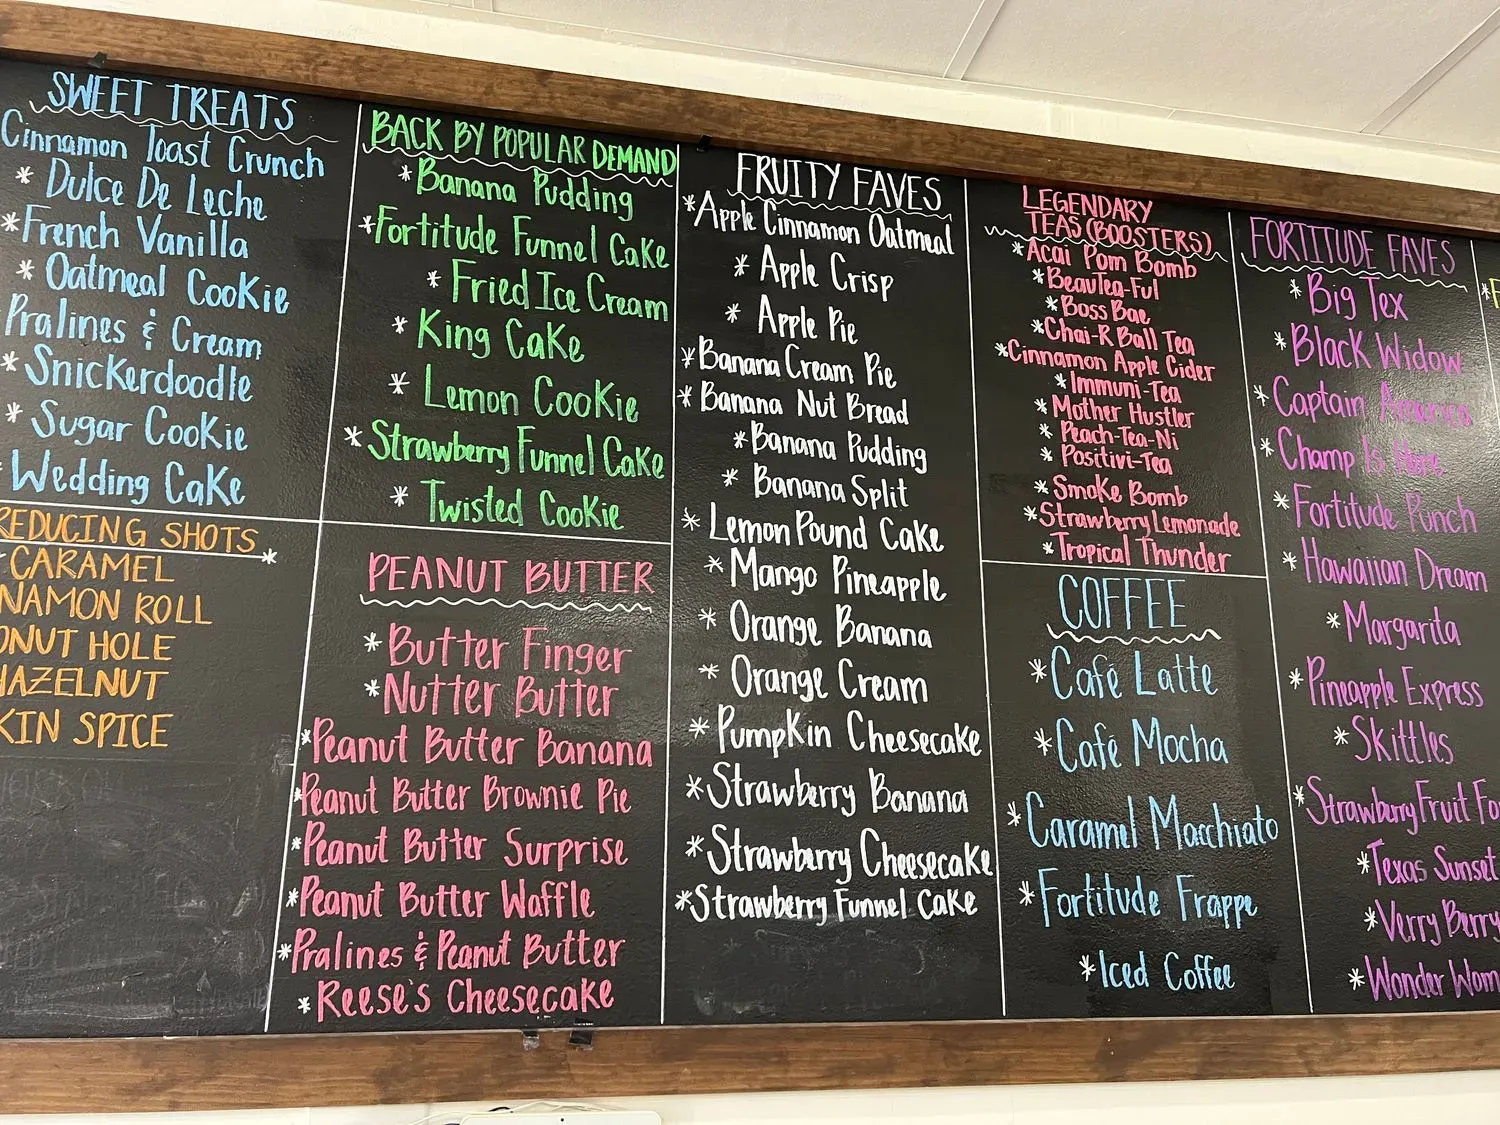 SWEET TREATS
Cinnamon Toast Crunch
* Dulce De Leche
* French Vanilla
* Oatmeal Cookie
Pralines & Cream
* Snickerdoodle
* Sugar Cookie
Wedding Cake
REDUCING SHOTS
CARAMEL
ROLL
HOLE
HAZELNUT
SPICE
BACK BY POPULAR DEMAND
* Banana Pudding
* Fortitude Funnel Cake
* Fried Ice Cream
* King Cake
* Lemon Cookie
* Strawberry Funnel Cake
* Twisted Cookie
PEANUT BUTTER
* Butter Finger
* Nutter Butter
* Peanut Butter Banana
* Peanut Butter Brownie Pie
* Peanut Butter Surprise
* Peanut Butter Waffle
* Pralines & Peanut Butter
* Reese's Cheesecake
FRUITY FAVES
* Apple Cinnamon Oatmeal
* Apple Crisp
* Apple Pie
* Banana Cream Pie
* Banana Nut Bread
* Banana Pudding
* Banana Split
* Lemon Pound Cake
* Mango Pineapple
* Orange Banana
* Orange Cream
* Pumpkin Cheesecake
* Strawberry Banana
* Strawberry Cheesecake
* Strawberry Funnel Cake
LEGENDARY
TEAS (BOOSTERS)
* Acai Pom Bomb
* BeauTea-Ful
* Boss Bae
* Chai-R Ball Tea
* Cinnamon Apple Cider
* Immuni-Tea
* Mother Hustler
* Peach-Tea-Ni
* Positivi-Tea
* Smoke Bomb
* Strawberry Lemonade
* Tropical Thunder
COFFEE
* Café Latte
* Café Mocha
* Caramel Macchiato
* Fortitude Frappe
* Iced Coffee
FORTITUDE FAVES
* Big Tex
* Black Widow
* Captain America
* Champ Is Here
* Fortitude Punch
* Hawaiian Dream
* Margarita
* Pineapple Express
* Skittles
* Strawberry Fruit
* Texas Sunset
* Verry Berry
* Wonder